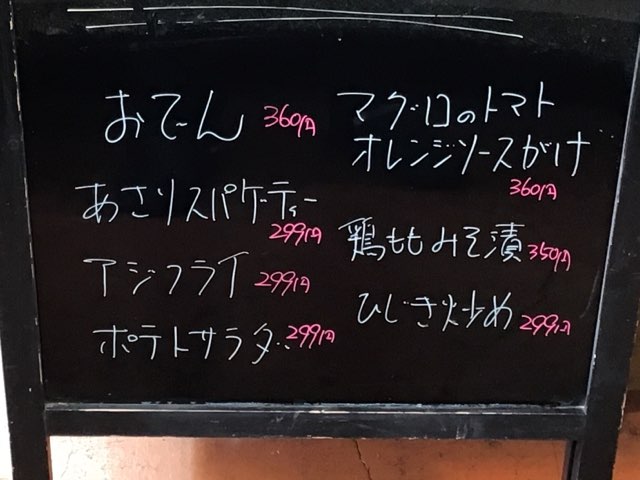 おでん 360円
あさりスパゲーティー
299円
アジフライ 299円
ポテトサラダ 299円
マグロのトマト
オレンジソースがけ
360円
鶏ももみそ漬 350円
ひじき炒め 299円